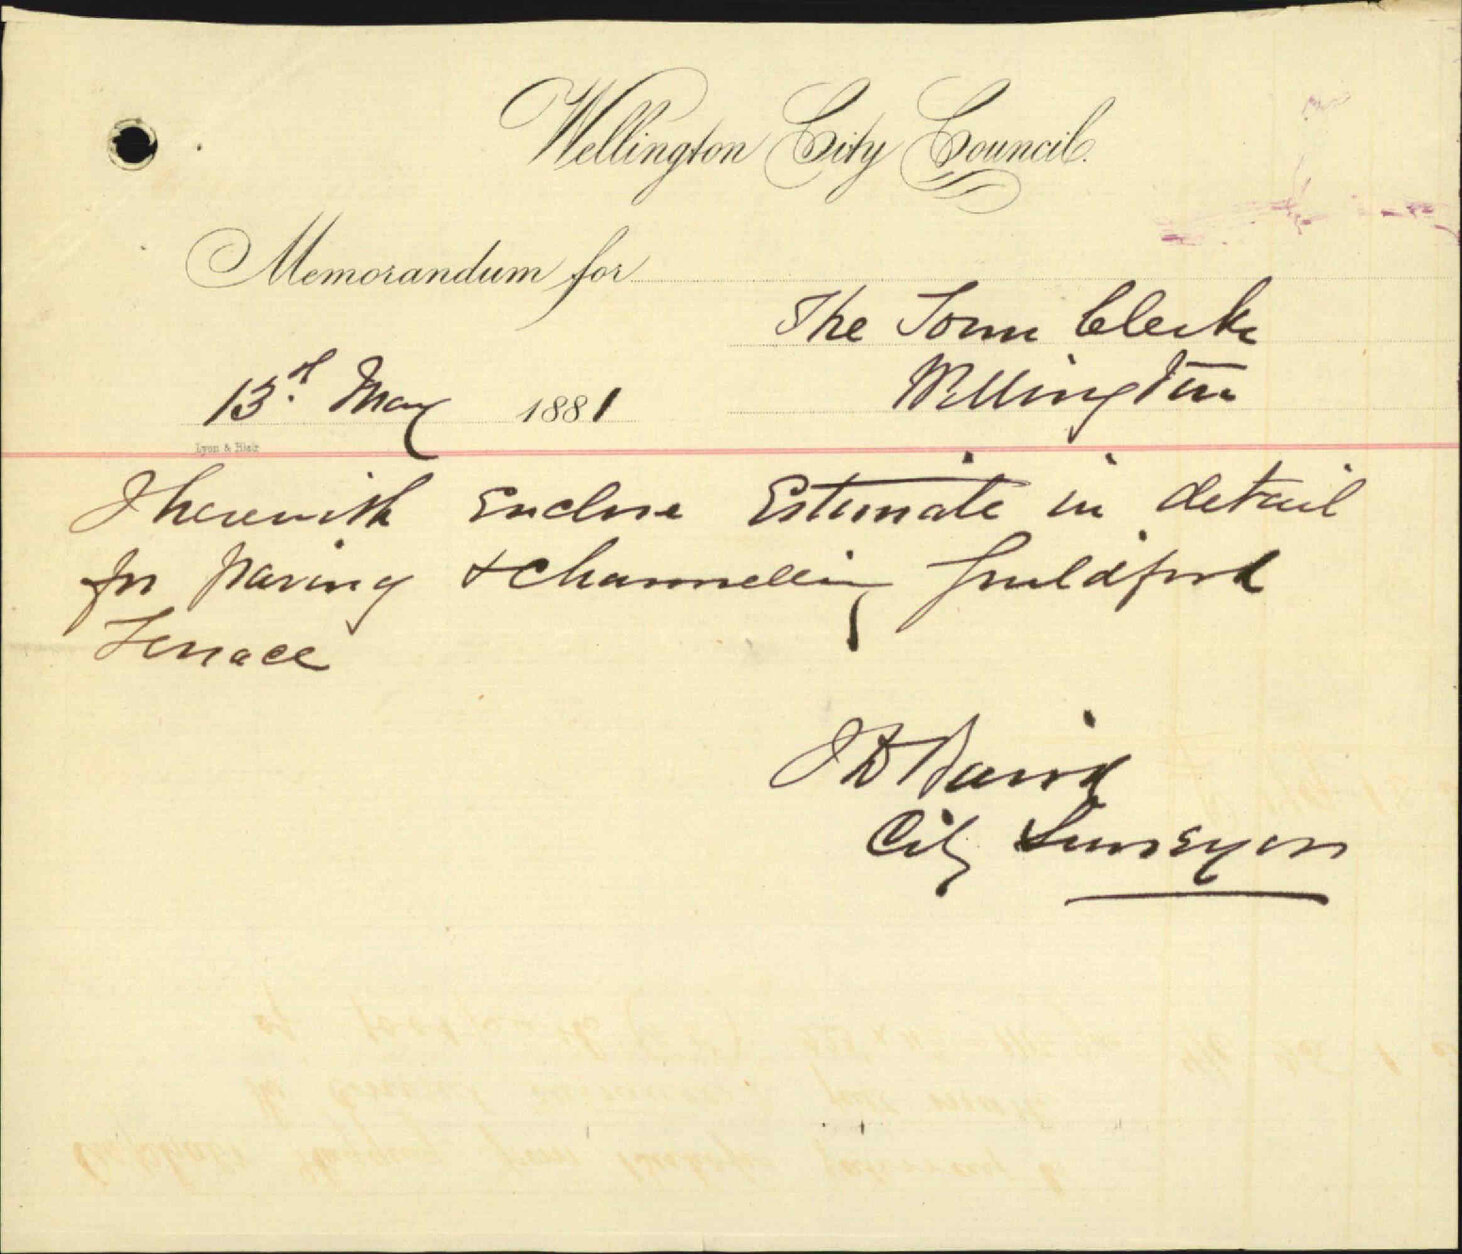 Wellington City Council.
Memorandum for
The Town Clerk
Wellington
13th May 1881
Lyon & Blair
I herewith Enclose Estimate in detail
for paving & Channelling Guildford
Terrace
J D Baird
City Surveyor